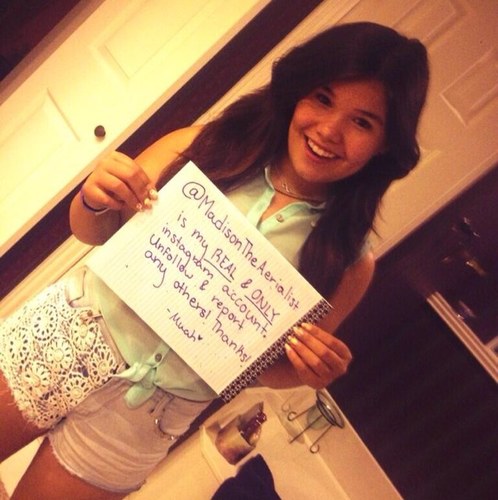 @MadisonTheAerialist
is my REAL & ONLY
instagram account.
Unfollow & report
any others! Thanks!
-Muah♥